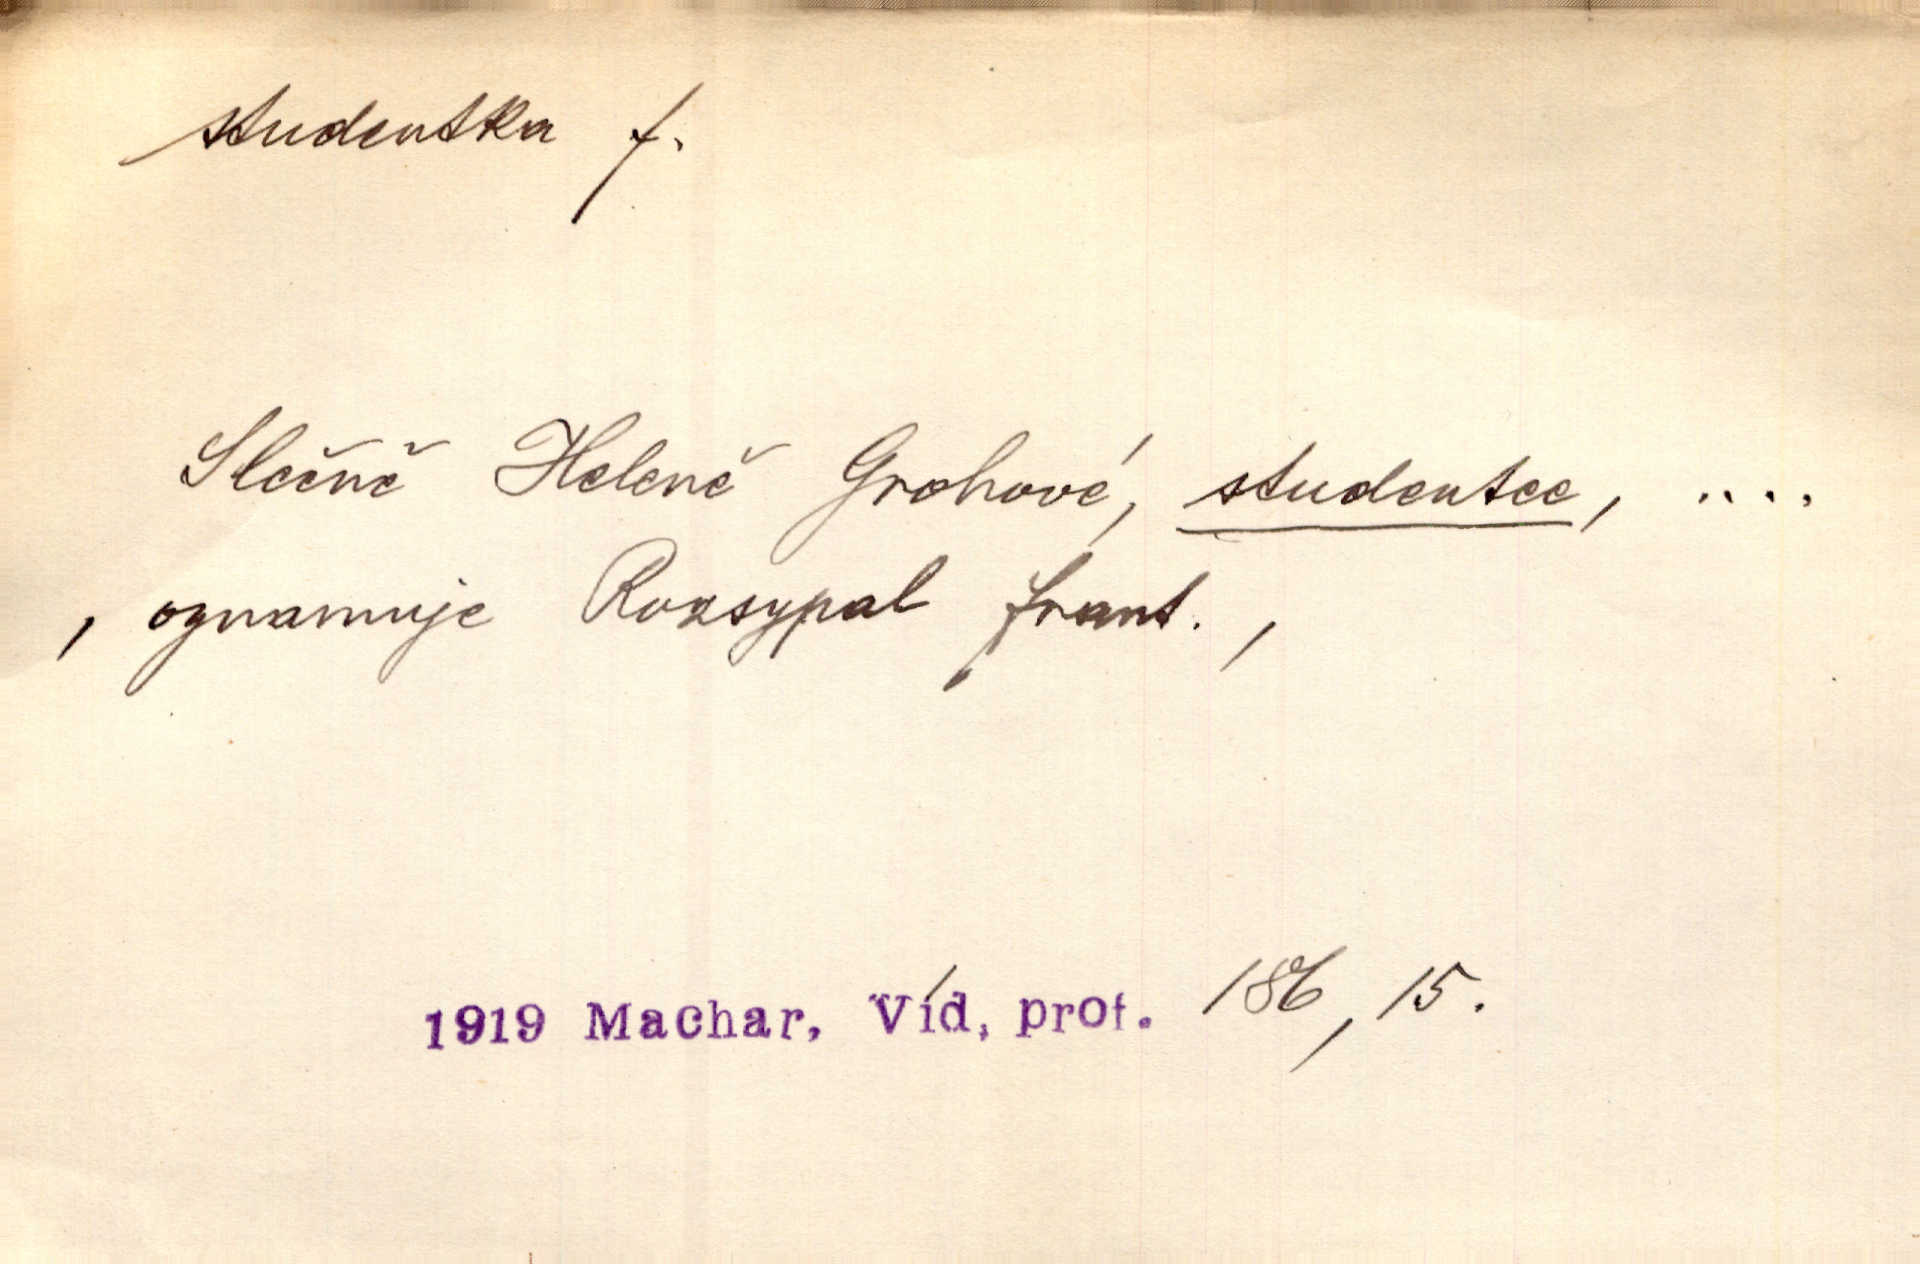 studentka f.
Slečně Heleně Grohové, studentce, ....
, oznamuje Rozsypal frant.,
1919 Machar, Víd, prof. 186, 15.